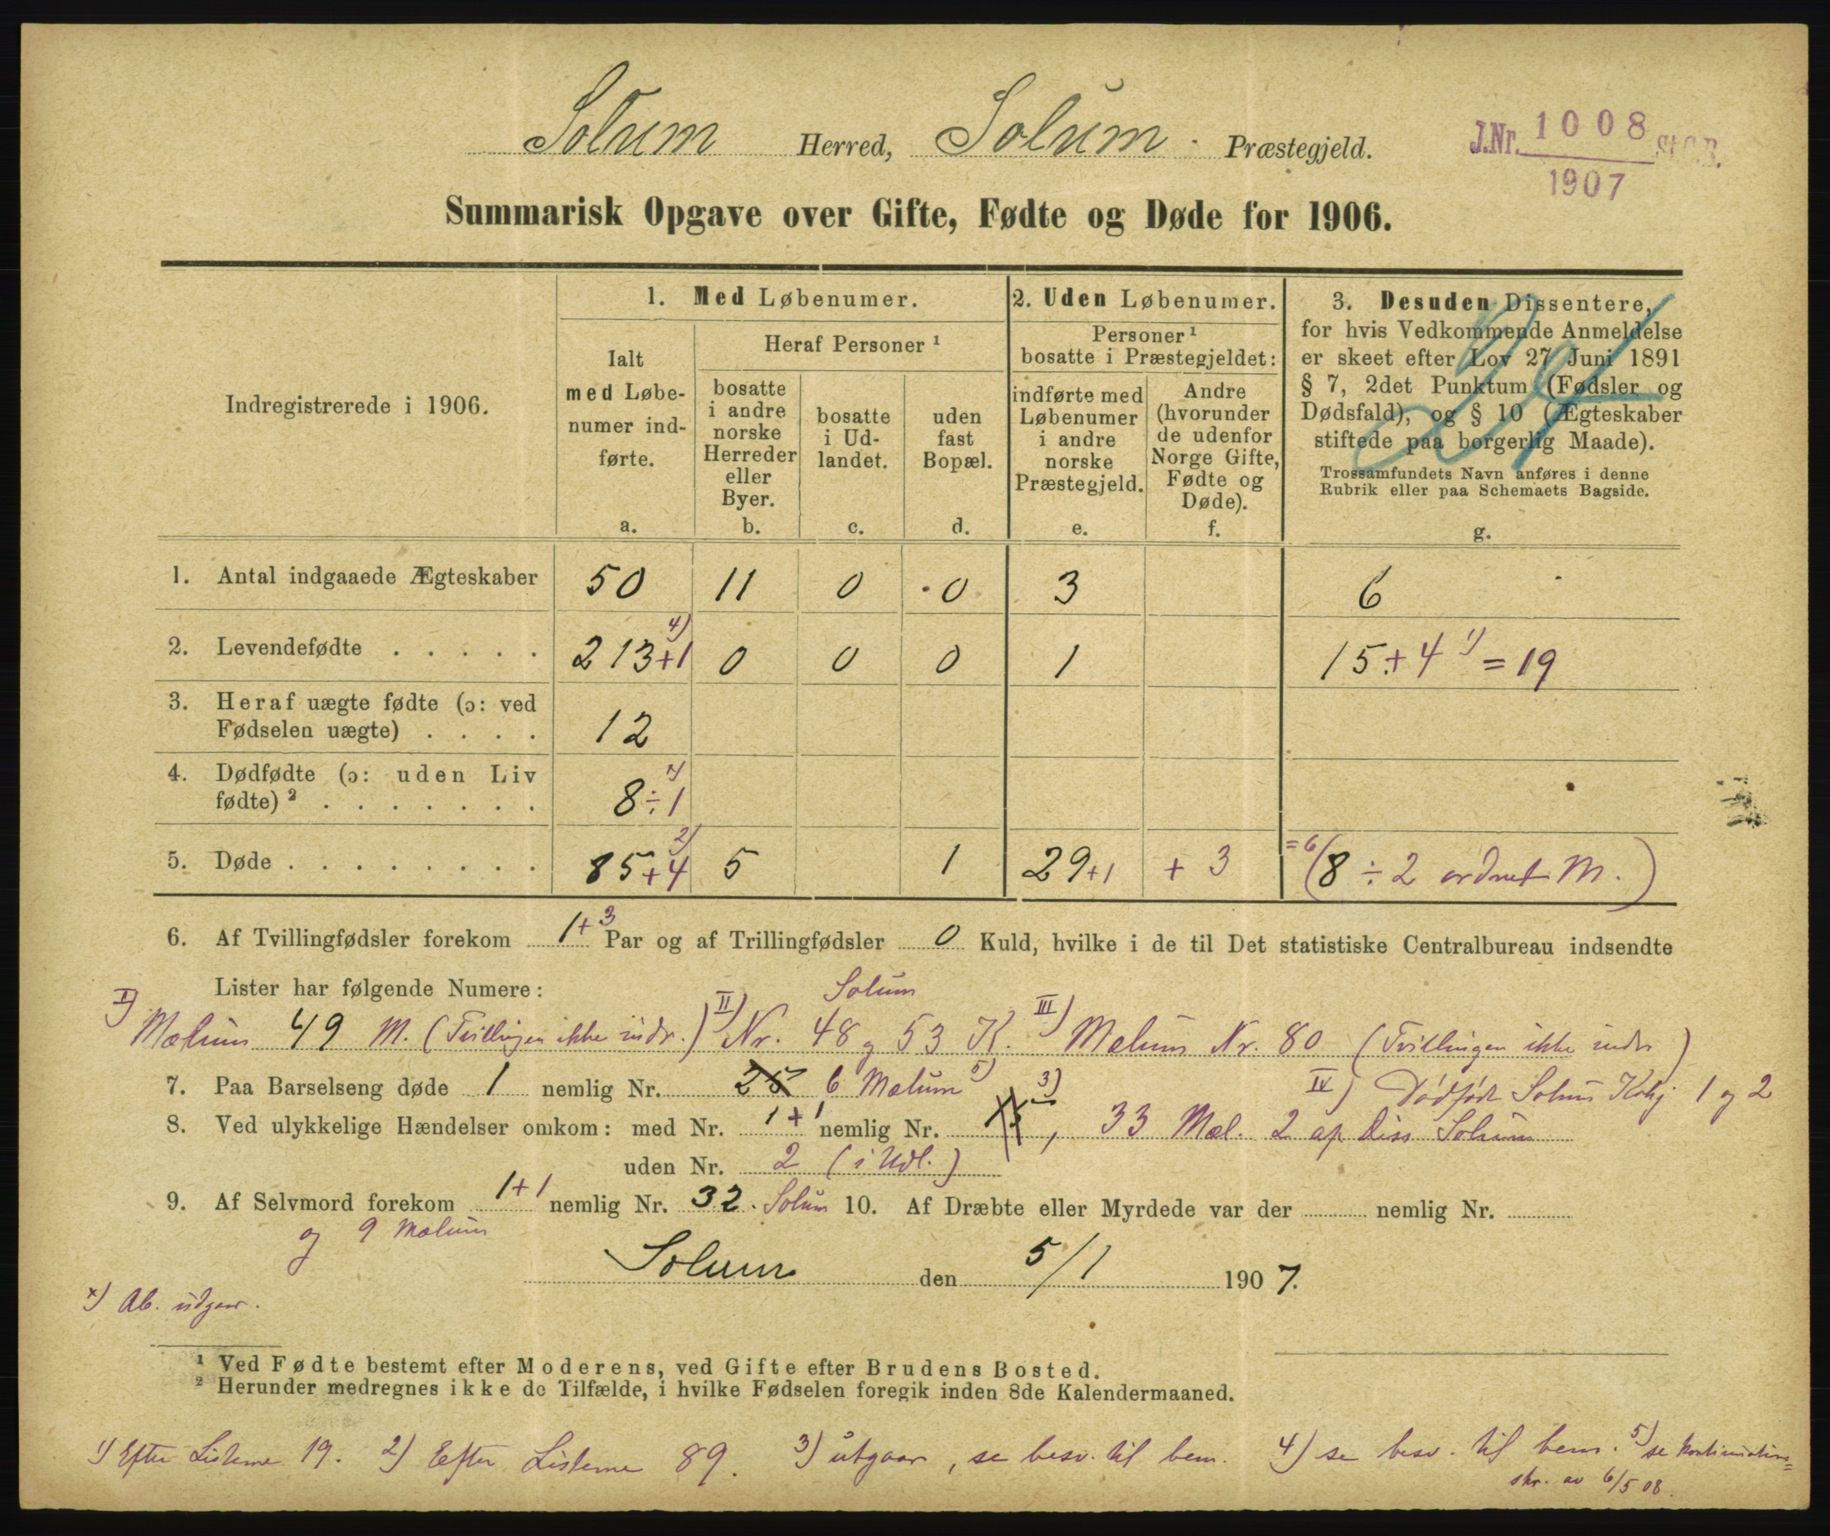 Solum Herred, Solum Præstegjeld.
J.Nr. 1008 St.C.B.
1907
Summarisk Opgave over Gifte, Fødte og Døde for 1906.
Indregistrerede i 1906.
1. Med Løbenumer.
Ialt
med Løbe-
numer ind-
førte.
a.
Heraf Personer ¹
bosatte
i andre
norske
Herreder
eller
Byer.
b.
bosatte
i Ud-
landet.
c.
uden
fast
Bopæl.
d.
2. Uden Løbenumer.
Personer ¹
bosatte i Præstegjeldet:
indførte med
Løbenumer
i andre
norske
Præstegjeld.
e.
Andre
(hvorunder
de udenfor
Norge Gifte,
Fødte og
Døde).
f.
3. Desuden Dissentere,
for hvis Vedkommende Anmeldelse
er skeet efter Lov 27 Juni 1891
§ 7, 2det Punktum (Fødsler og
Dødsfald), og § 10 (Ægteskaber
stiftede paa borgerlig Maade).
Trossamfundets Navn anføres i denne
Rubrik eller paa Schemaets Bagside.
g.
1. Antal indgaaede Ægteskaber 50 11 0 0 3 6
2. Levendefødte . . . . . 213+1 4) 0 0 0 1 15+4 1) = 19
3. Heraf uægte fødte (ɔ: ved
Fødselen uægte) . . . . 12
4. Dødfødte (ɔ: uden Liv
fødte) ² . . . . . . . 8÷1 x)
5. Døde . . . . . . . . 85+4 2) 5 1 29+1 + 3 =6 (8 ÷ 2 ordnet M.)
6. Af Tvillingfødsler forekom 1+3 Par og af Trillingfødsler 0 Kuld, hvilke i de til Det statistiske Centralbureau indsendte
Lister har følgende Numere: Solum
I) Mælum 49 M. (Tvillingen ikke indr.) II) Nr. 48 og 53 K. III) Mælum Nr. 80 (Tvillingen ikke indr)
7. Paa Barselseng døde 1 nemlig Nr. 25 6 Mælum 5) IV) Dødfødt Solum 1 og 2
8. Ved ulykkelige Hændelser omkom: med Nr. 1+1 nemlig Nr. 3), 33 Mæl. 2 af Diss Solum
uden Nr. 2 (i Udl.)
9. Af Selvmord forekom 1+1 nemlig Nr. 32. Solum 10. Af Dræbte eller Myrdede var der nemlig Nr.
og 9 Mælum
Solum den 5/1 1907.
x) Ab. udgaar.
¹ Ved Fødte bestemt efter Moderens, ved Gifte efter Brudens Bosted.
² Herunder medregnes ikke de Tilfælde, i hvilke Fødselen foregik inden 8de Kalendermaaned.
1) Efter Listerne 19. 2) Efter Listerne 89. 3) utgaar, se besv. til bem. 4) se besv. til bem. 5) se kontinuations=
skr. av 6/5 08.